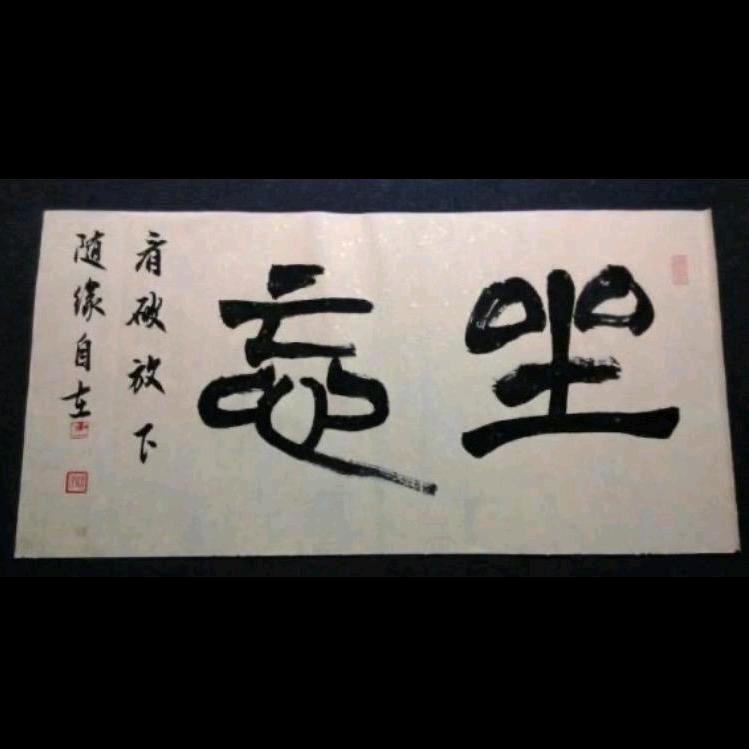 坐忘
看破放下
随缘自在